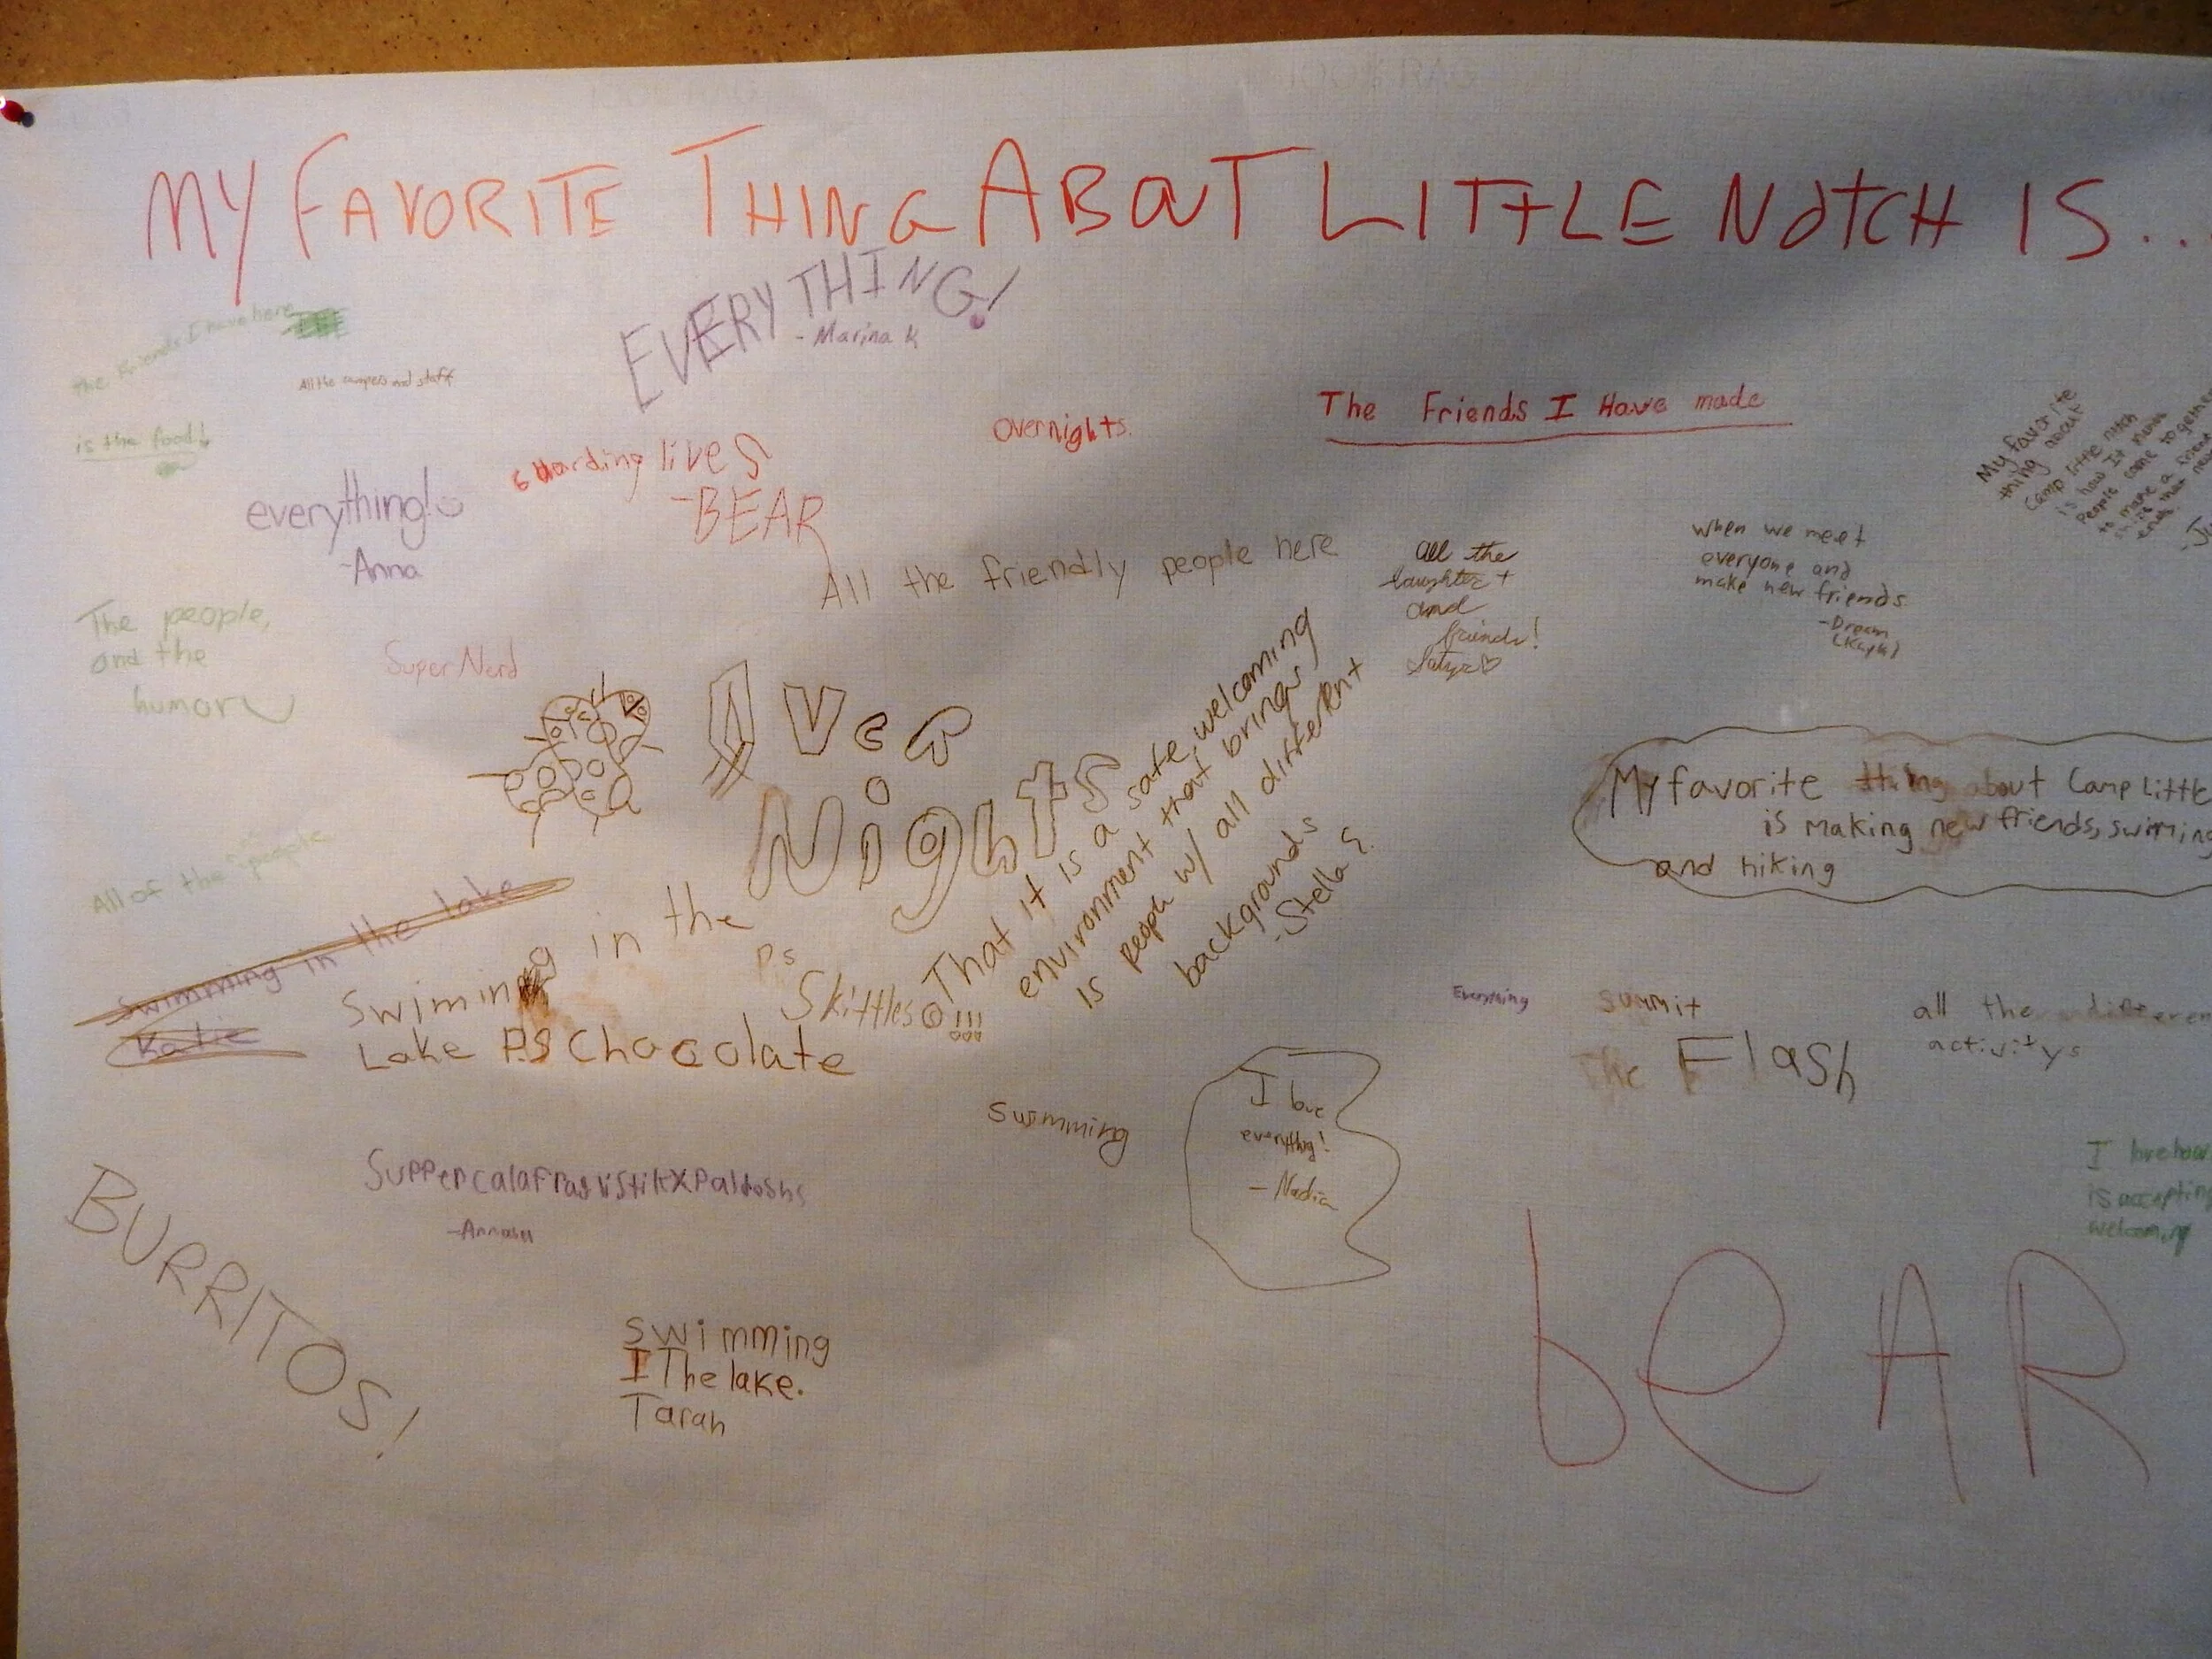 MY FAVORITE THING ABOUT LITTLE NOTCH IS...
EVERYTHING!
- Marina K
the Friends I have here
All the campers and staff
is the food!
everything!
-Anna
Guarding lives
-BEAR
Overnights.
The Friends I Have made
My favorite
thing about
Camp little notch
is how it
People come together
to make a friend
when we meet
everyone and
make new friends
-Dream
All the friendly people here
all the
laughter +
and
friends!
The people,
and the
humor
Super Nerd
Over
Nights
That it is a safe, welcoming
environment that brings
is people w/ all different
backgrounds
-Stella S.
My favorite thing about Camp Little
is making new friends, swiming
and hiking
All of the people
Swimming in the lake
Katie
Swiming in the
Lake P.S Chocolate
Ps
Skittles !!!
Everything
Summit
The Flash
all the different
activitys
swimming
I love
everything!
- Nadia
I love how
is accepting
welcoming
BURRITOS!
-Annabel
Swimming
I The lake.
Tarah
beAR